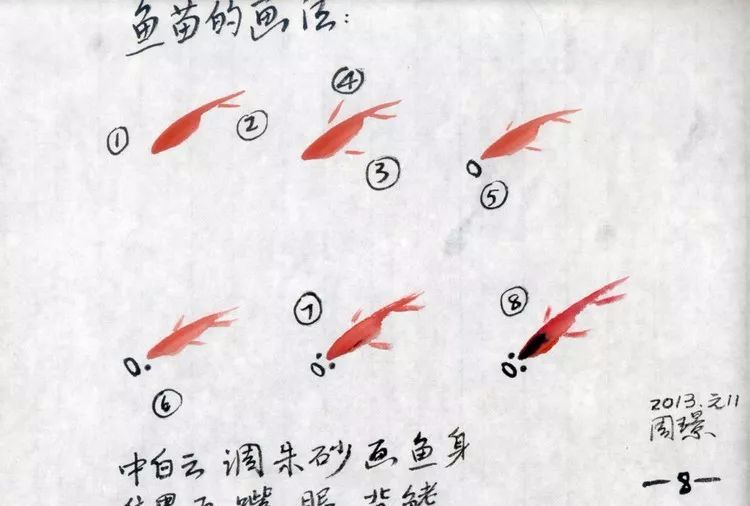 鱼苗的画法:
④
① ②
③
⑤
⑦ ⑧
⑥
2013.元11
周璟
中白云调朱砂画鱼身
8
眼 背鳍